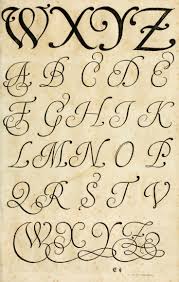 WXYZ
A B C D E
F G H I K
L M N O P
Q R S T V
W X Y Z